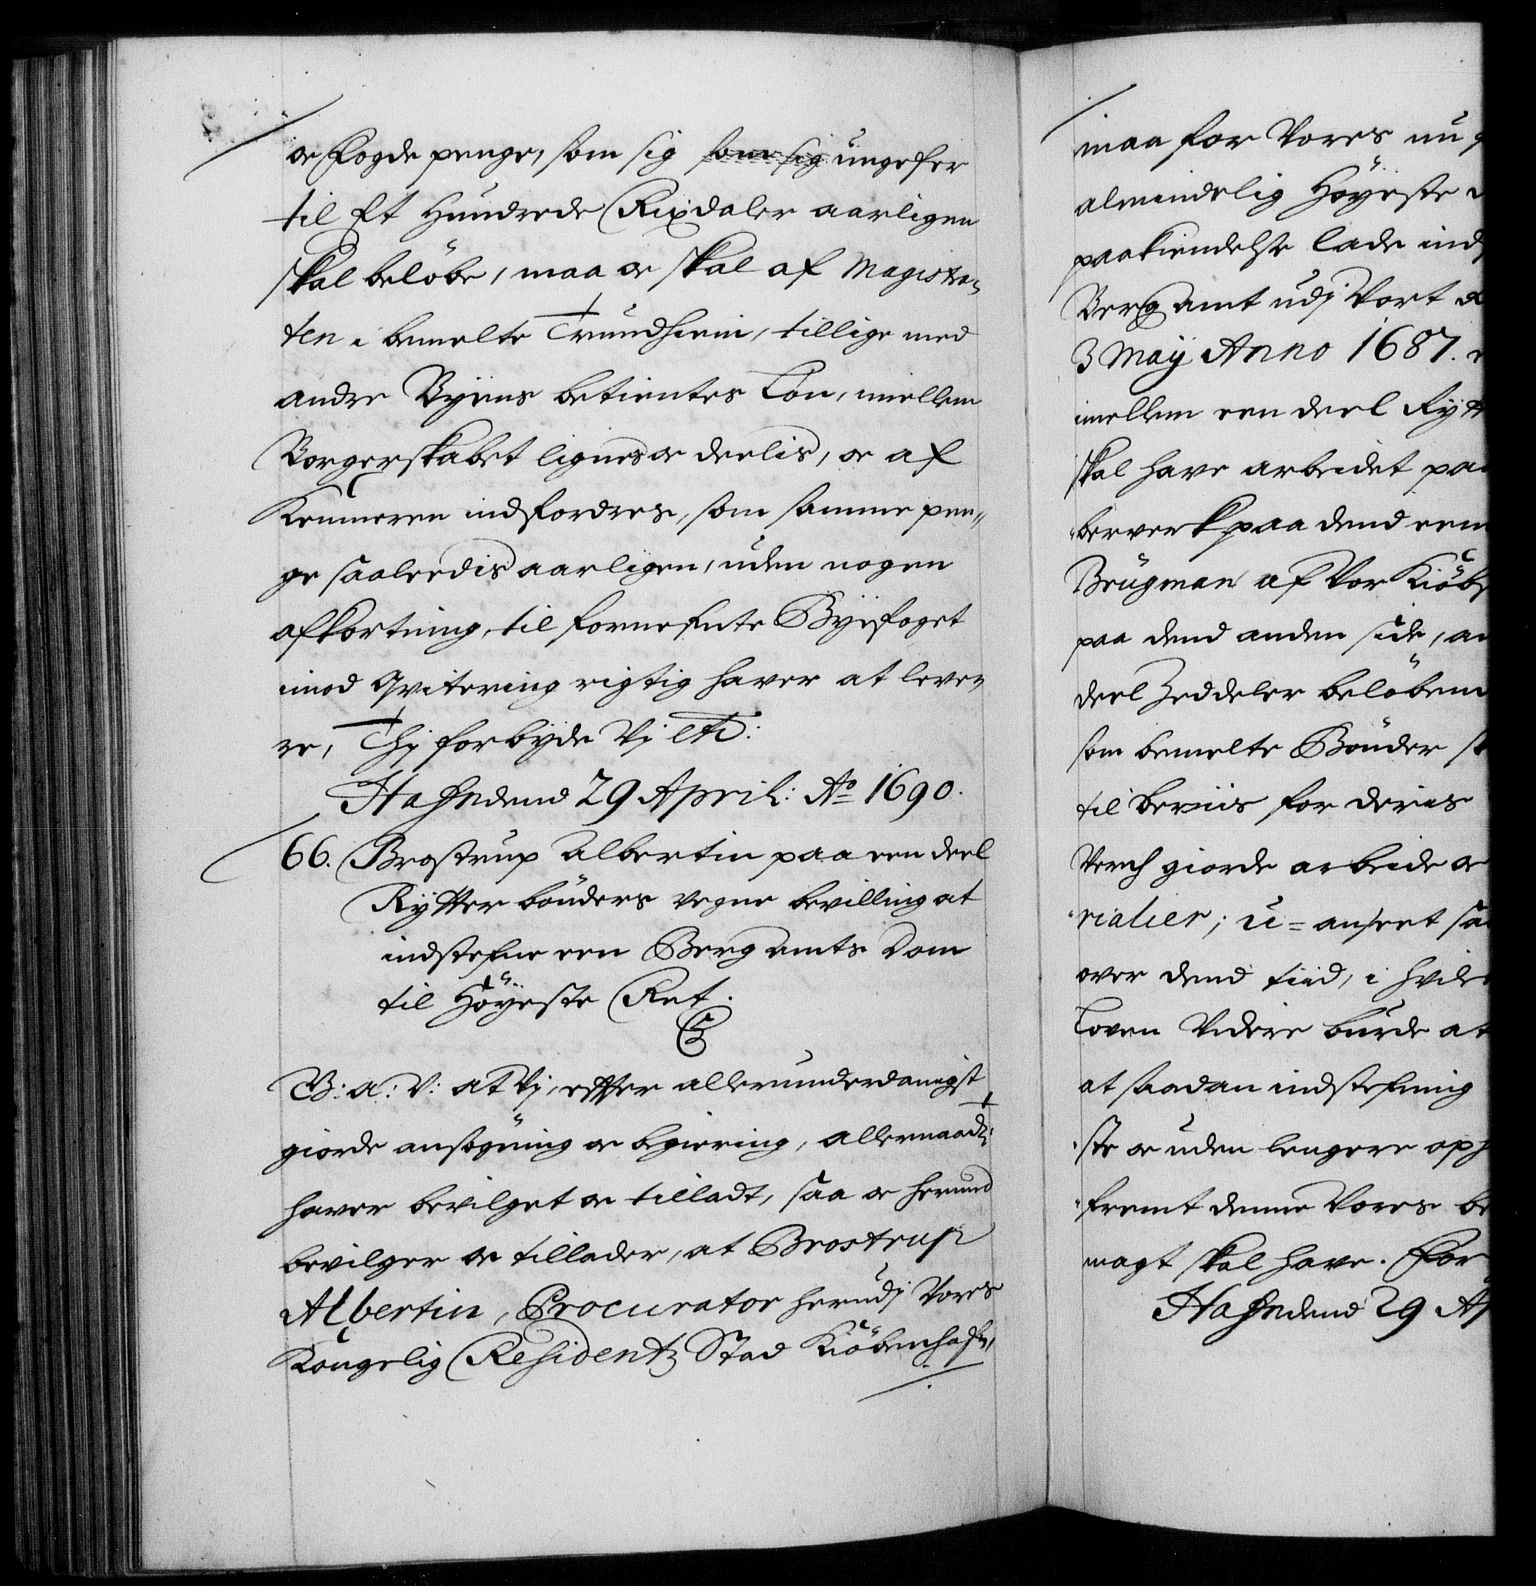 oc Fogde penge, som sig som sig ungefer
til Et Hundrede Rixdaler aarligen
skal beløbe, maa oc skal af Magistra-
ten i bemelte Trundhiem, tillige med
andre Byens betientes Løn, imellem
Borgerskabet lignes oc deelis, oc af
Kemneren indfordres, som samme pen-
ge saaleedis aarligen, uden nogen
afkortning, til fornefnte Byefoget
imod Qvitering rigtig haver at leve-
re, Thj forbyde Vj etc:
Hafn dend 29 April: Ao 1690.
66. Brostrup Albertin paa een deel
Rytter bønders vegne bevilling at
indstefne een Berg amts Dom
til Høyeste Ret.
V: a: V: at Vj, efter allerunderdanigst
giorde ansøgning oc begiering, allernaadst
haver bevilget oc tilladt, saa oc hermed
bevilger oc tillader, at Brostrup
Albertin, Procurator herudj Vores
Kongelig Residentz Stad Kiøbenhafn,
maa for Vores nu
almindelig Høyeste
paakiendelse lade ind
Berg amt udj Vort
3 Maij Anno 1687.
imellem een deel Rytt
skal have arbeidet paa
berverk paa dend eene
Brügman af Vor Kiøb
paa dend anden side, an
deel Zeddeler beløbend
som bemelte Bønder
til beviis for deres
Verch giorde arbeide oc
rialier; u-anseet saa
over dend tiid, i hvilc
Loven Videre burde at
at saadan indstefning
ste oc uden lengere oph
fremt denne Vores be
magt skal have. For
Hafn dend 29 Ap